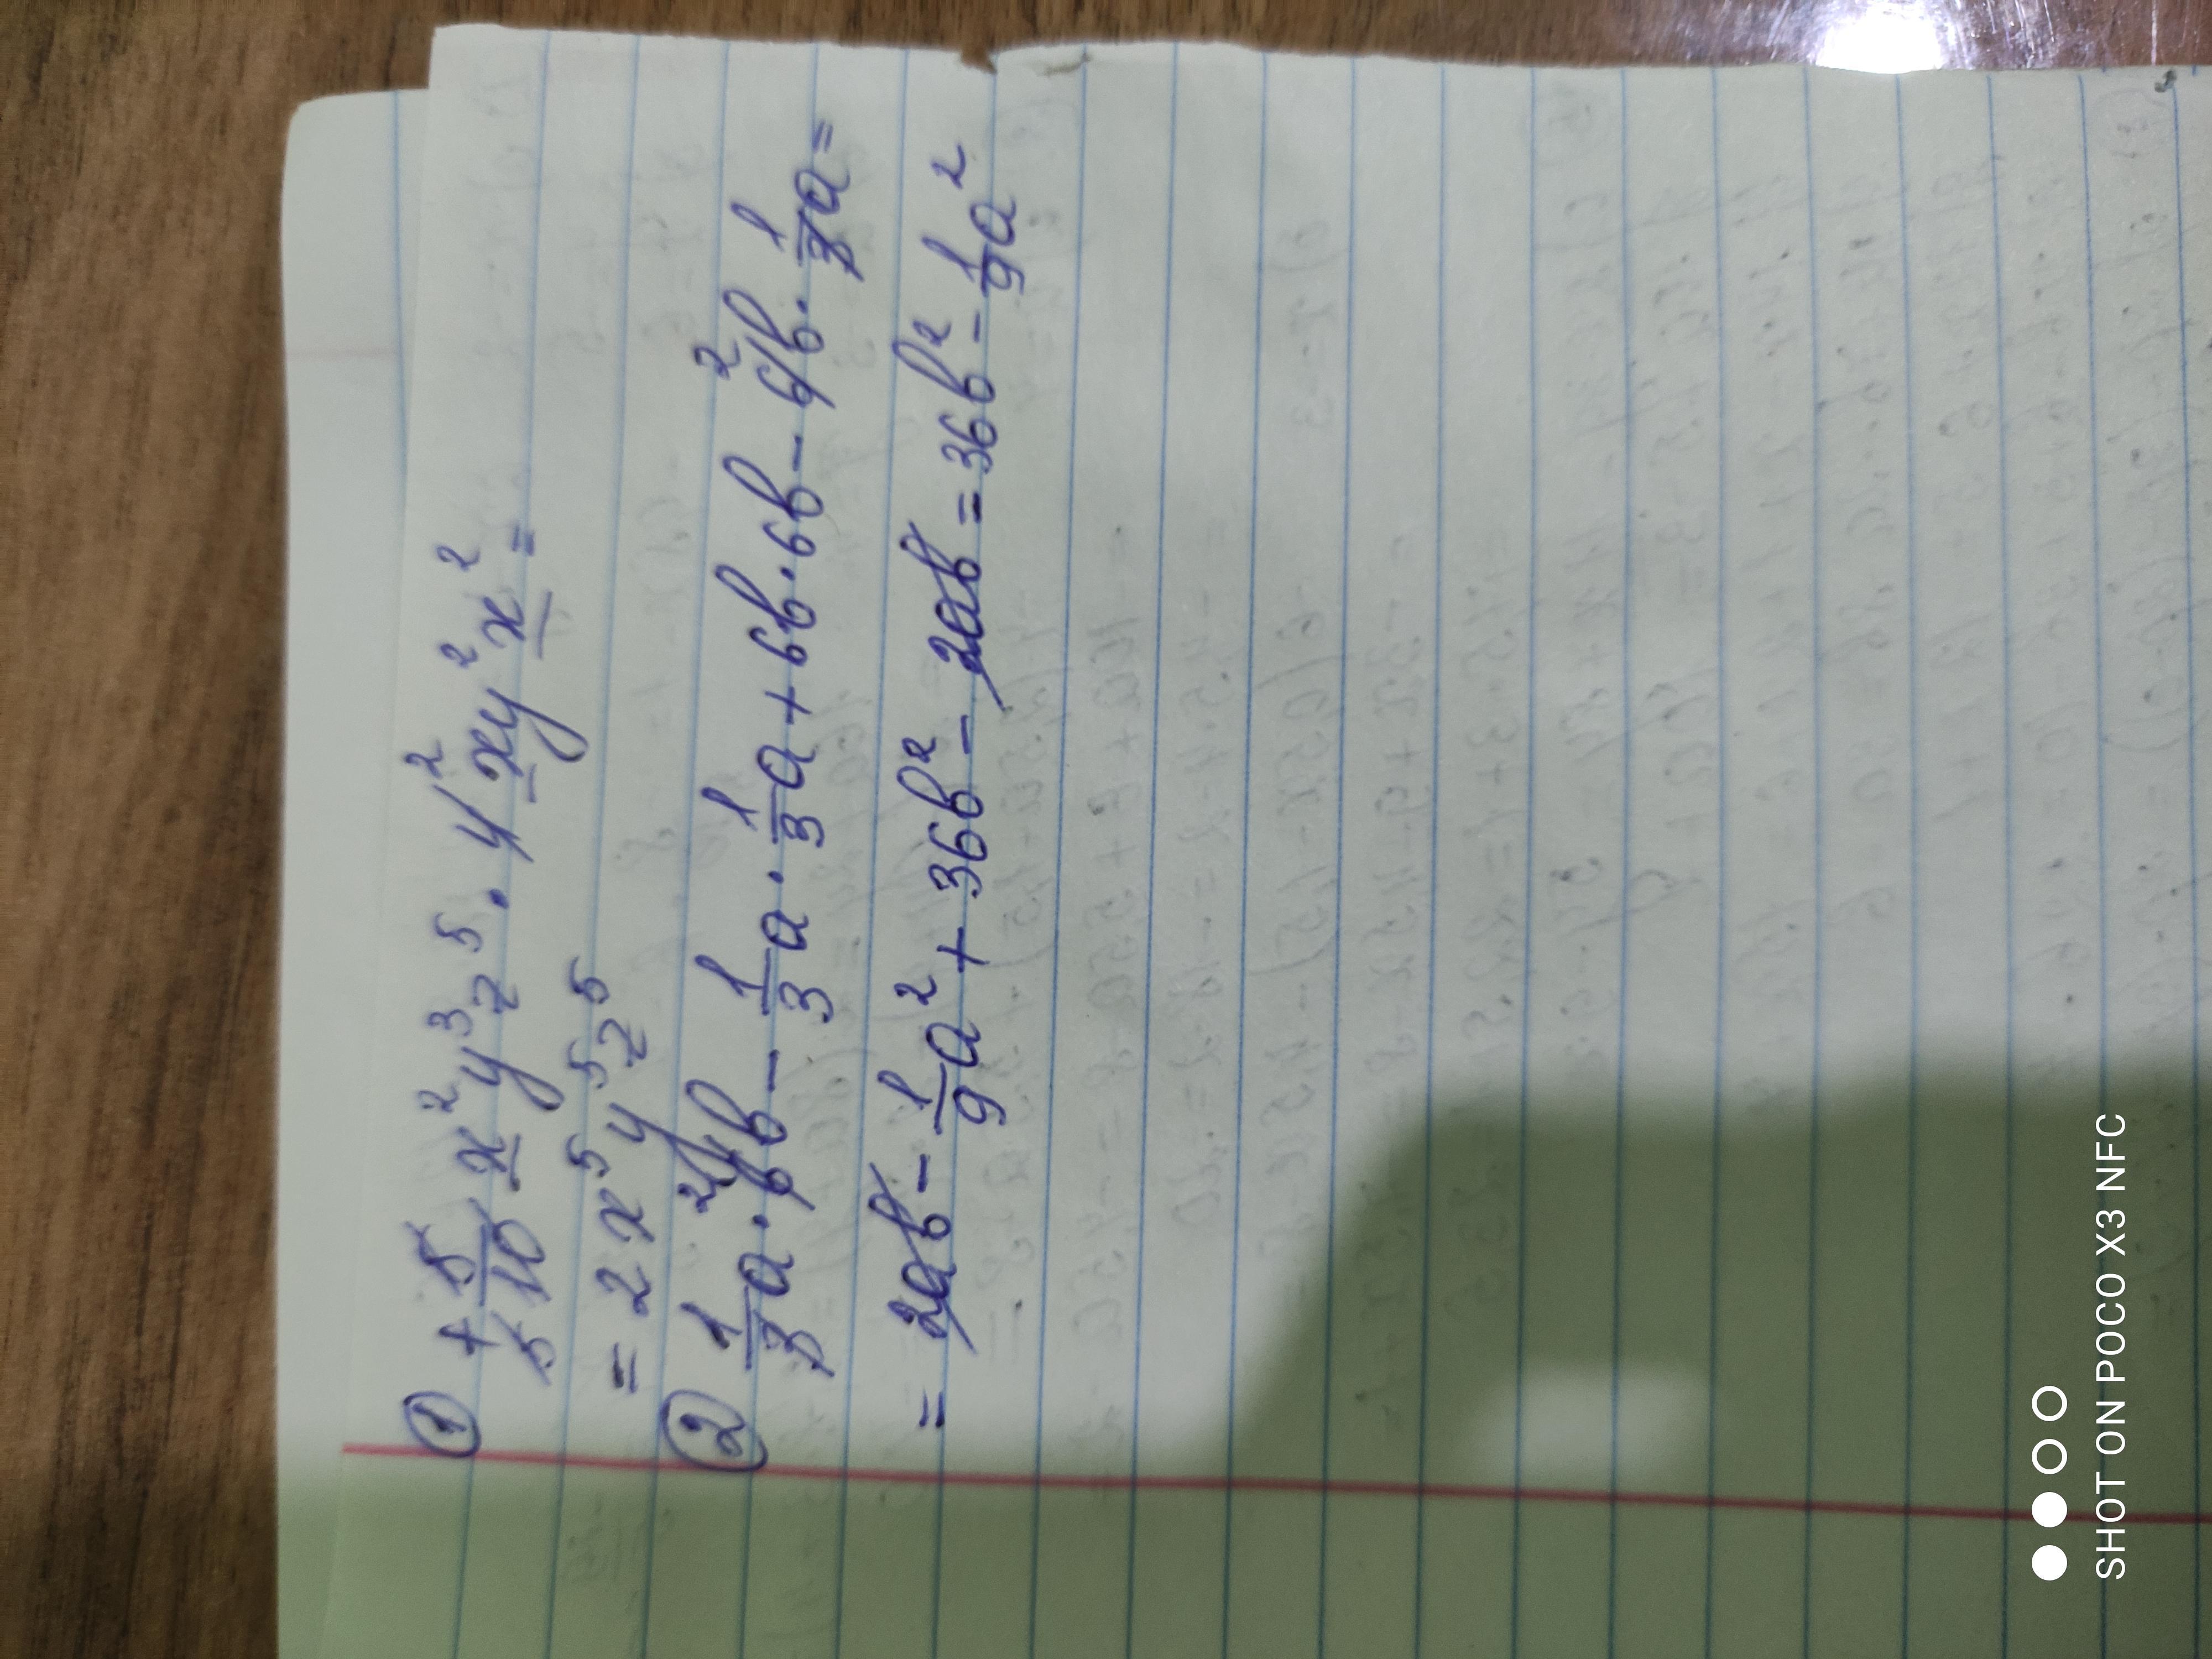 ① + 5/10 x² y³ z⁵ · 4² x y² x² =
= 2 x⁵ y⁵ z⁵
② 1/3 a · 6b − 1/3 a · 1/3 a + 6b · 6b − 6b · 1/3 a =
= 2ab − 1/9 a² + 36b² − 2ab = 36b² − 1/9 a²
SHOT ON POCO X3 NFC